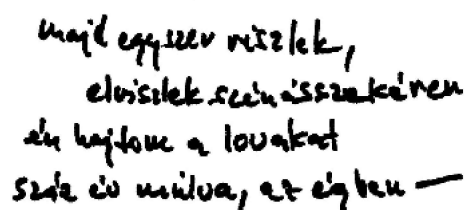 majd egyszer viszlek,
elviszlek szénásszekéren
én hajtom a lovakat
száz év mulva, az égben —